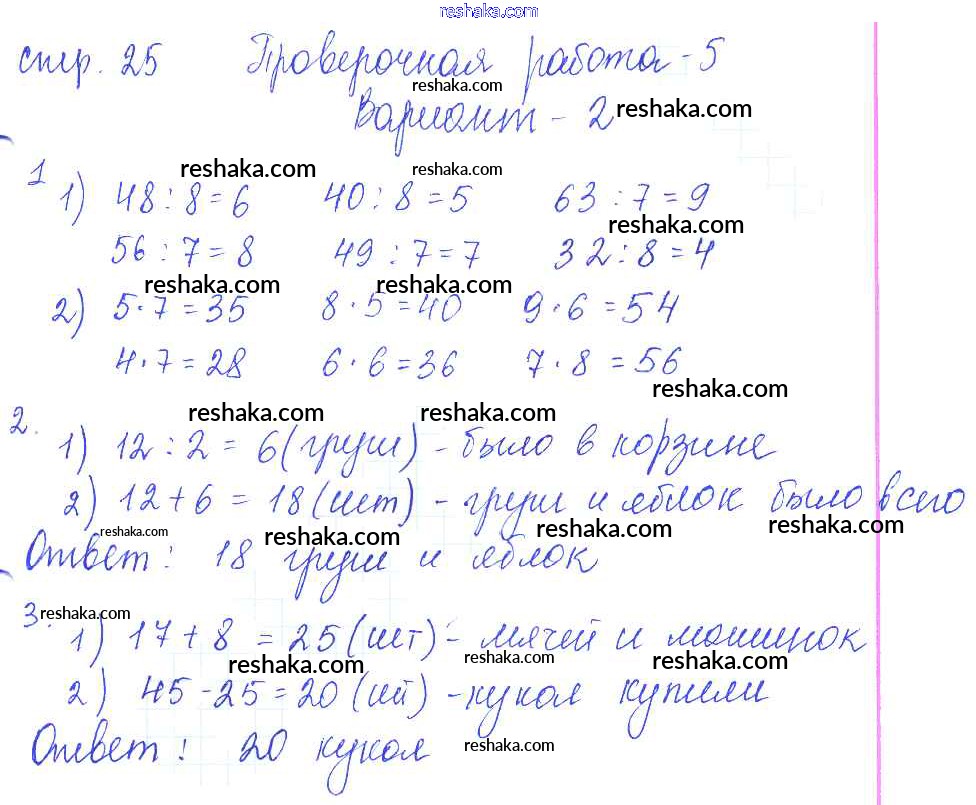 reshaka.com
стр. 25 Проверочная работа - 5
reshaka.com
Вариант - 2 reshaka.com
reshaka.com reshaka.com
1 1) 48 : 8 = 6 40 : 8 = 5 63 : 7 = 9
reshaka.com
56 : 7 = 8 49 : 7 = 7 32 : 8 = 4
reshaka.com reshaka.com
2) 5 · 7 = 35 8 · 5 = 40 9 · 6 = 54
4 · 7 = 28 6 · 6 = 36 7 · 8 = 56
reshaka.com
reshaka.com reshaka.com
2. 1) 12 : 2 = 6 (груш) - было в корзине
2) 12 + 6 = 18 (шт) - груш и яблок было всего
reshaka.com reshaka.com reshaka.com reshaka.com
Ответ: 18 груш и яблок
3. reshaka.com
1) 17 + 8 = 25 (шт) - мячей и машинок
reshaka.com reshaka.com reshaka.com
2) 45 - 25 = 20 (ш) - кукол купили
Ответ: 20 кукол reshaka.com